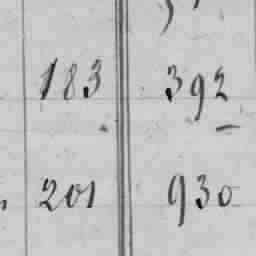 183 392
201 930